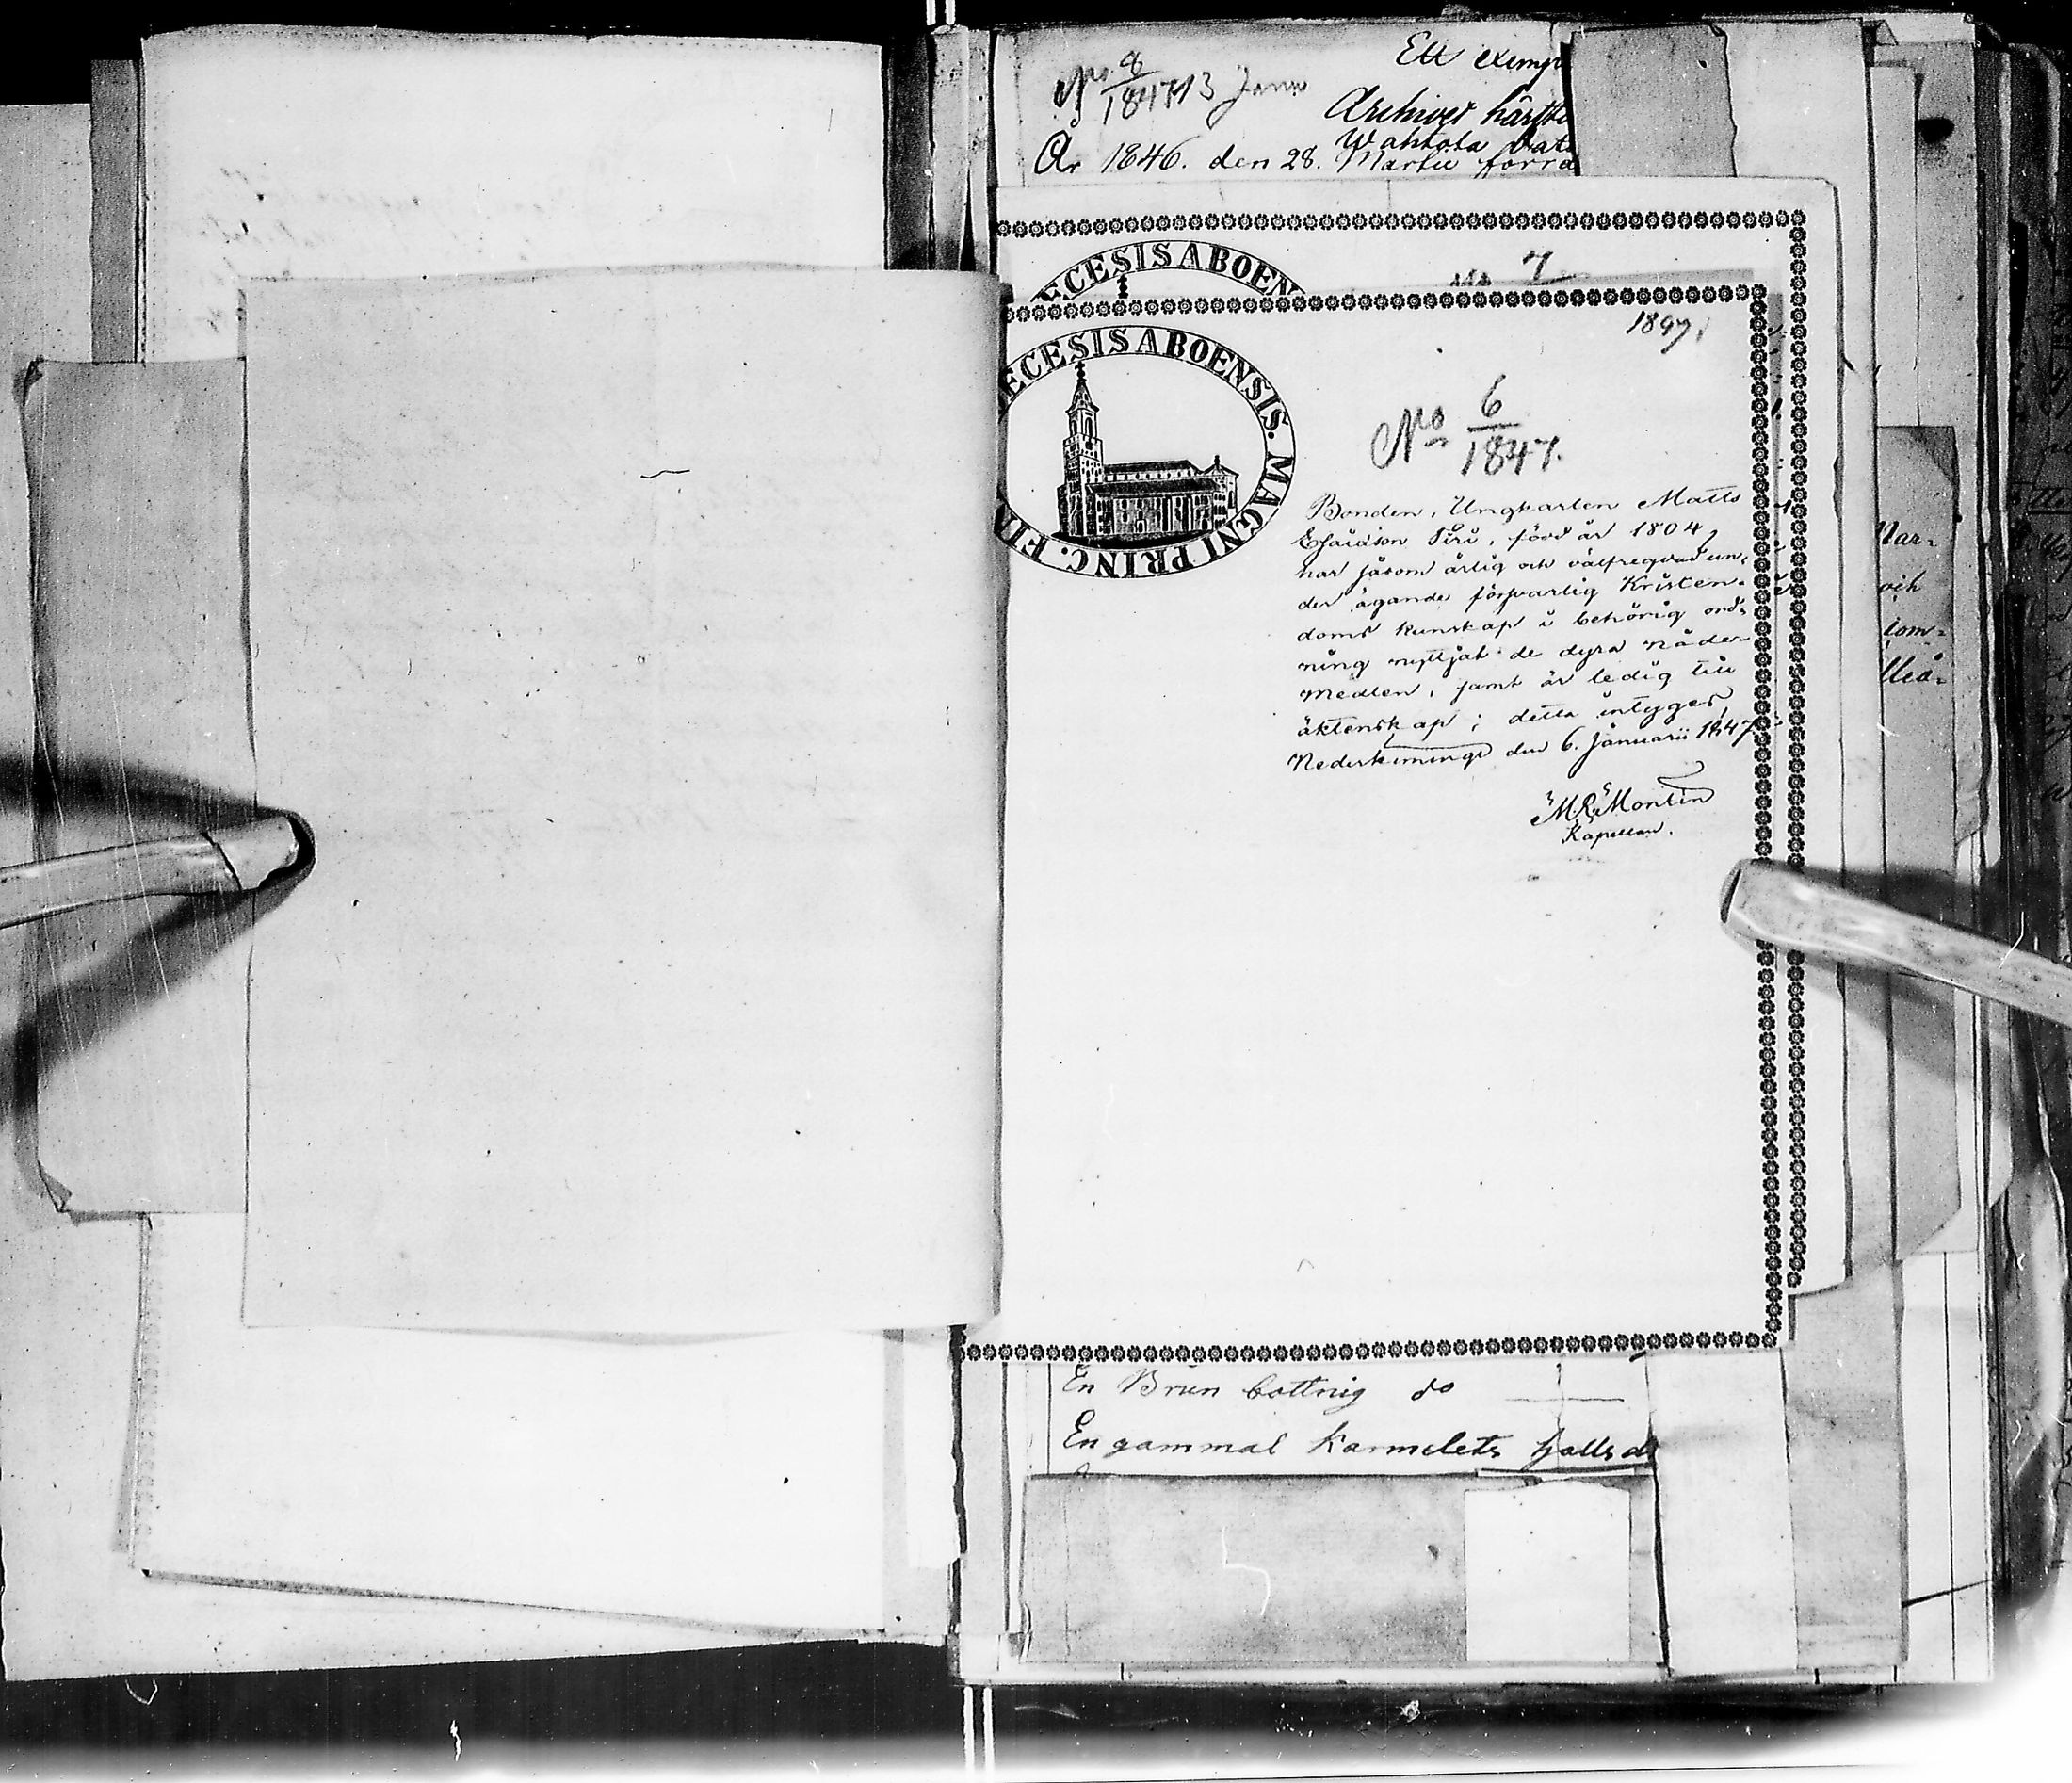 Ett exemp
No 8
1847 13 Janu
Archivet härstä
Wahtola
År 1846. den 28. Martii förra
ECESIS ABOEN
No 7
1847.
ECESIS ABOENSIS. MAGNI PRINC. FIN
No 6
1847.
Bonden, Ungkarlen Matts
Esaiäson Piri, född år 1804,
har såsom ärlig och välfregdad un-
der ägande försvarlig Kristen-
doms kunskap i behörig ord-
ning nyttjat de dyra nåde-
medlen, samt är ledig till
äktenskap; detta intygas,
Nederkimingi den 6. Januarii 1847
M. R. Montin
Kapellan.
Mar-
och
som-
En Brun bottnig do
En gammal Karmelets